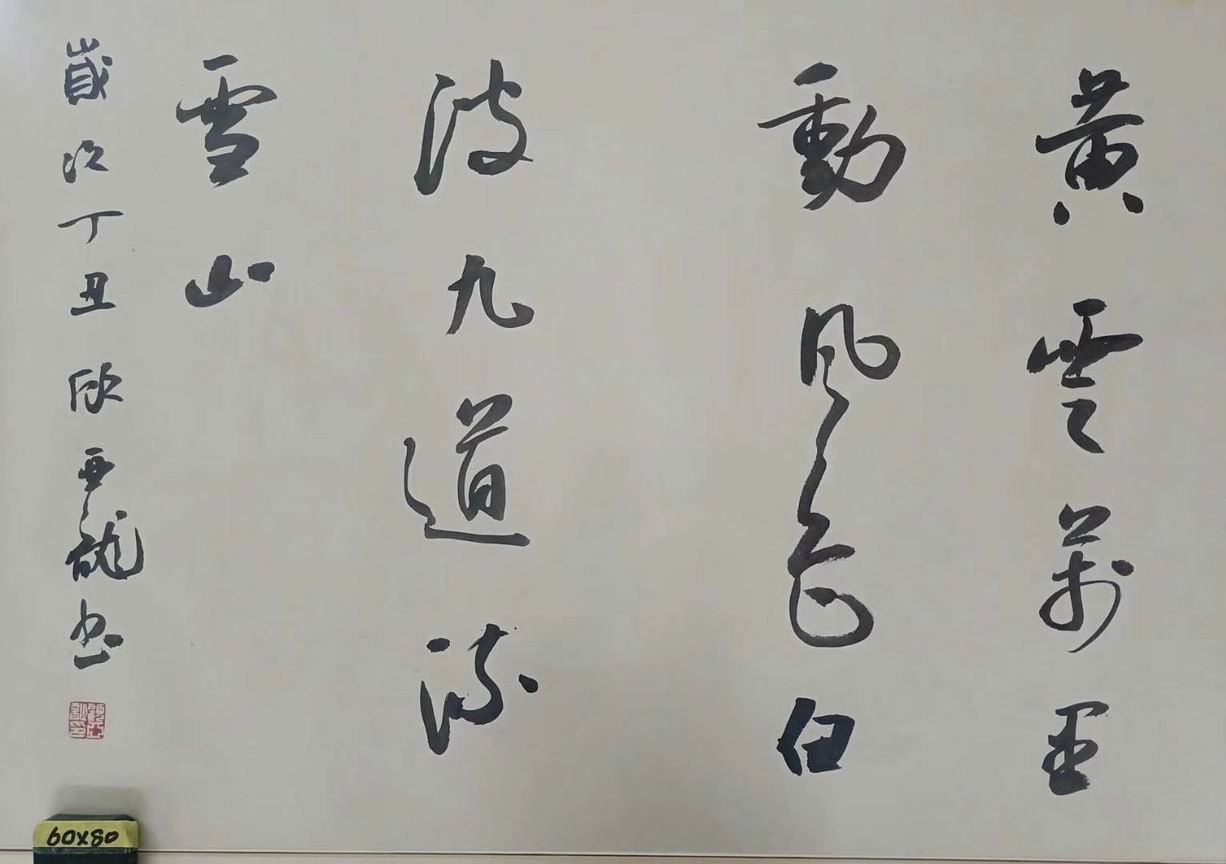 黃雲萬里
動風色白
波九道流
雪山
歲次丁丑欣亞龍书
60x80